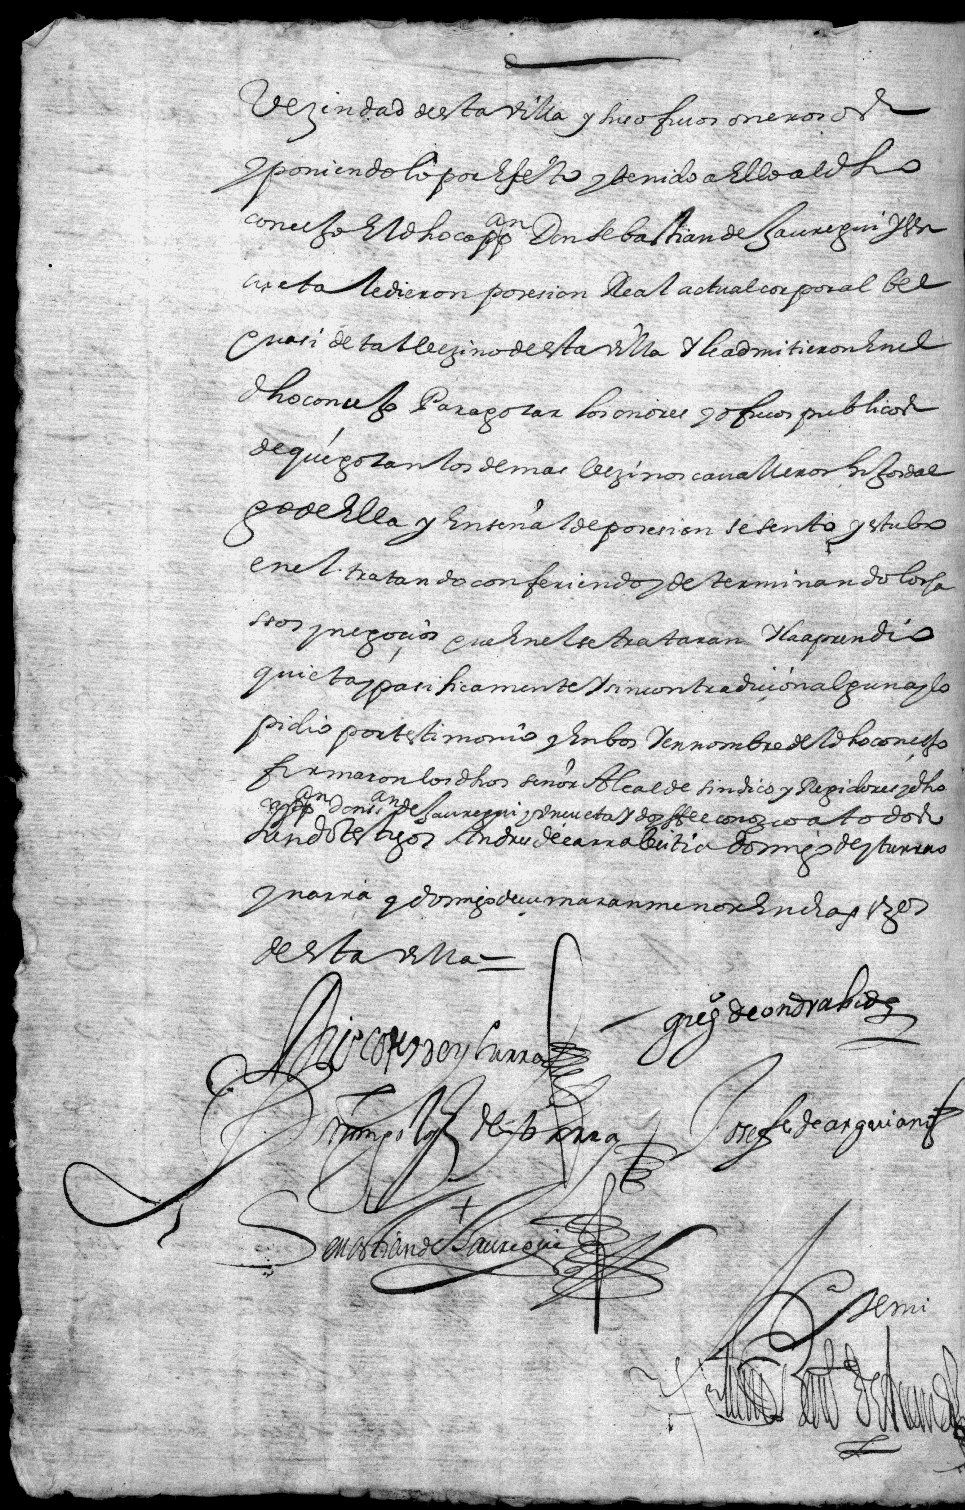 Vezindad de esta Villa y sus ofiçios onerosos
y poniendolo por Efecto y benido a Ello al dho
concejo El dho cappan Don Sebastian de Jauregui Yen
cueta le dieron posesion Real actual corporal bel
quasi de tal Vezino de esta Villa Y le admitieron En el
dho concejo Para gozar los onores y ofiçios publicos
de que gozan los demas Vezinos caualleros hijosdal
go de Ella y En señal de posesion se sento y estubo
en el tratando confiriendo y determinando los ca
sos y negoçios que En el se trataran Y la aprendio
quieta y paçificamente Y sin contradiçion alguna y lo
pidio por testimonio y Enbos Y en nombre del dho concejo
firmaron los dhos señor Alcalde sindico y Regidores y dho
cappan Don Sen de Jauregui y Yencueta Y doy ffee conozco a todos
siendo testigos Andres de de ytturra
y domingo de menor En dias Vzos
de esta Villa
de yturra
greg de ondrabida
de ybarra
Josephe de arguiano
Seuastian de Jauregui
Ante mi